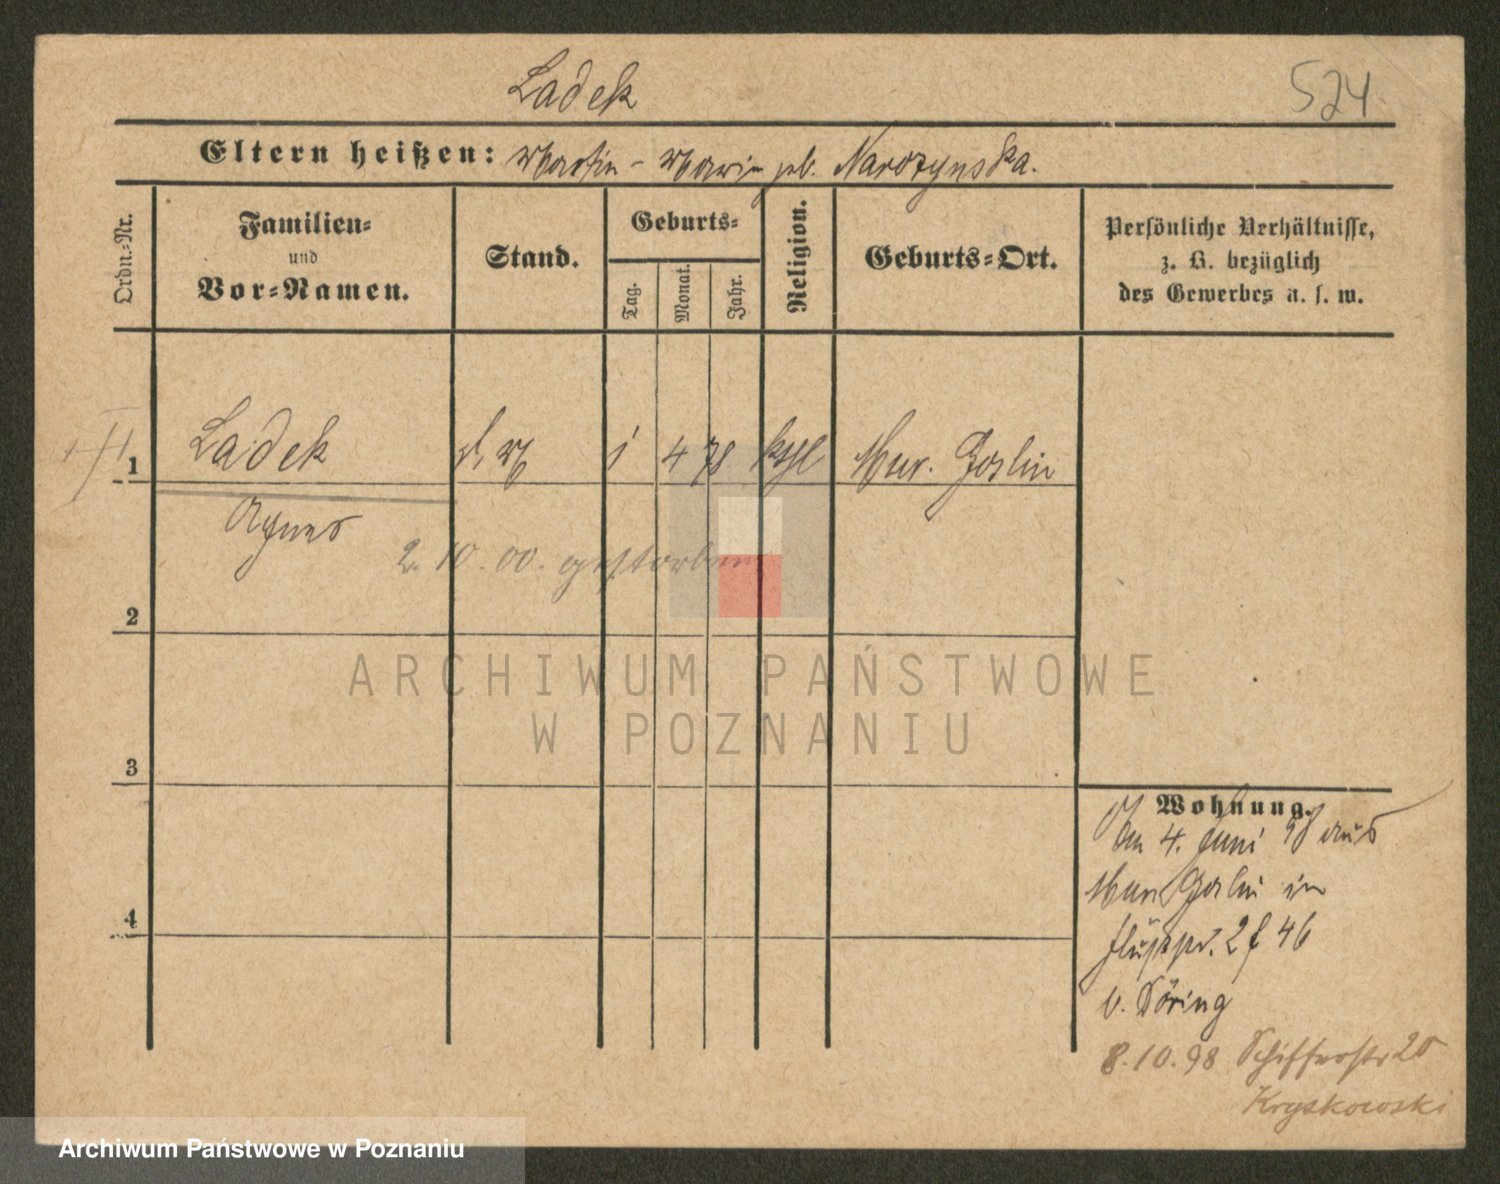 Ladek
524
Eltern heißen: Martin - Marie geb. Narozynska.
Ordn.-Nr.
Familien-
und
Vor-Namen.
Stand.
Geburts-
Tag.
Monat.
Jahr.
Religion.
Geburts-Ort.
Persönliche Verhältnisse,
z. B. bezüglich
des Gewerbes u. s. w.
1 Ladek d. M 1 4 78 kthl Mur. Goslin
Agnes
2. 10. 00. gestorben
2
3
4
Wohnung.
Am 4. Juni 98 aus
Mur Goslin in
46
b. Döring
8.10.98 Schifferstr 20
Kryskowski
ARCHIWUM PAŃSTWOWE
W POZNANIU
Archiwum Państwowe w Poznaniu